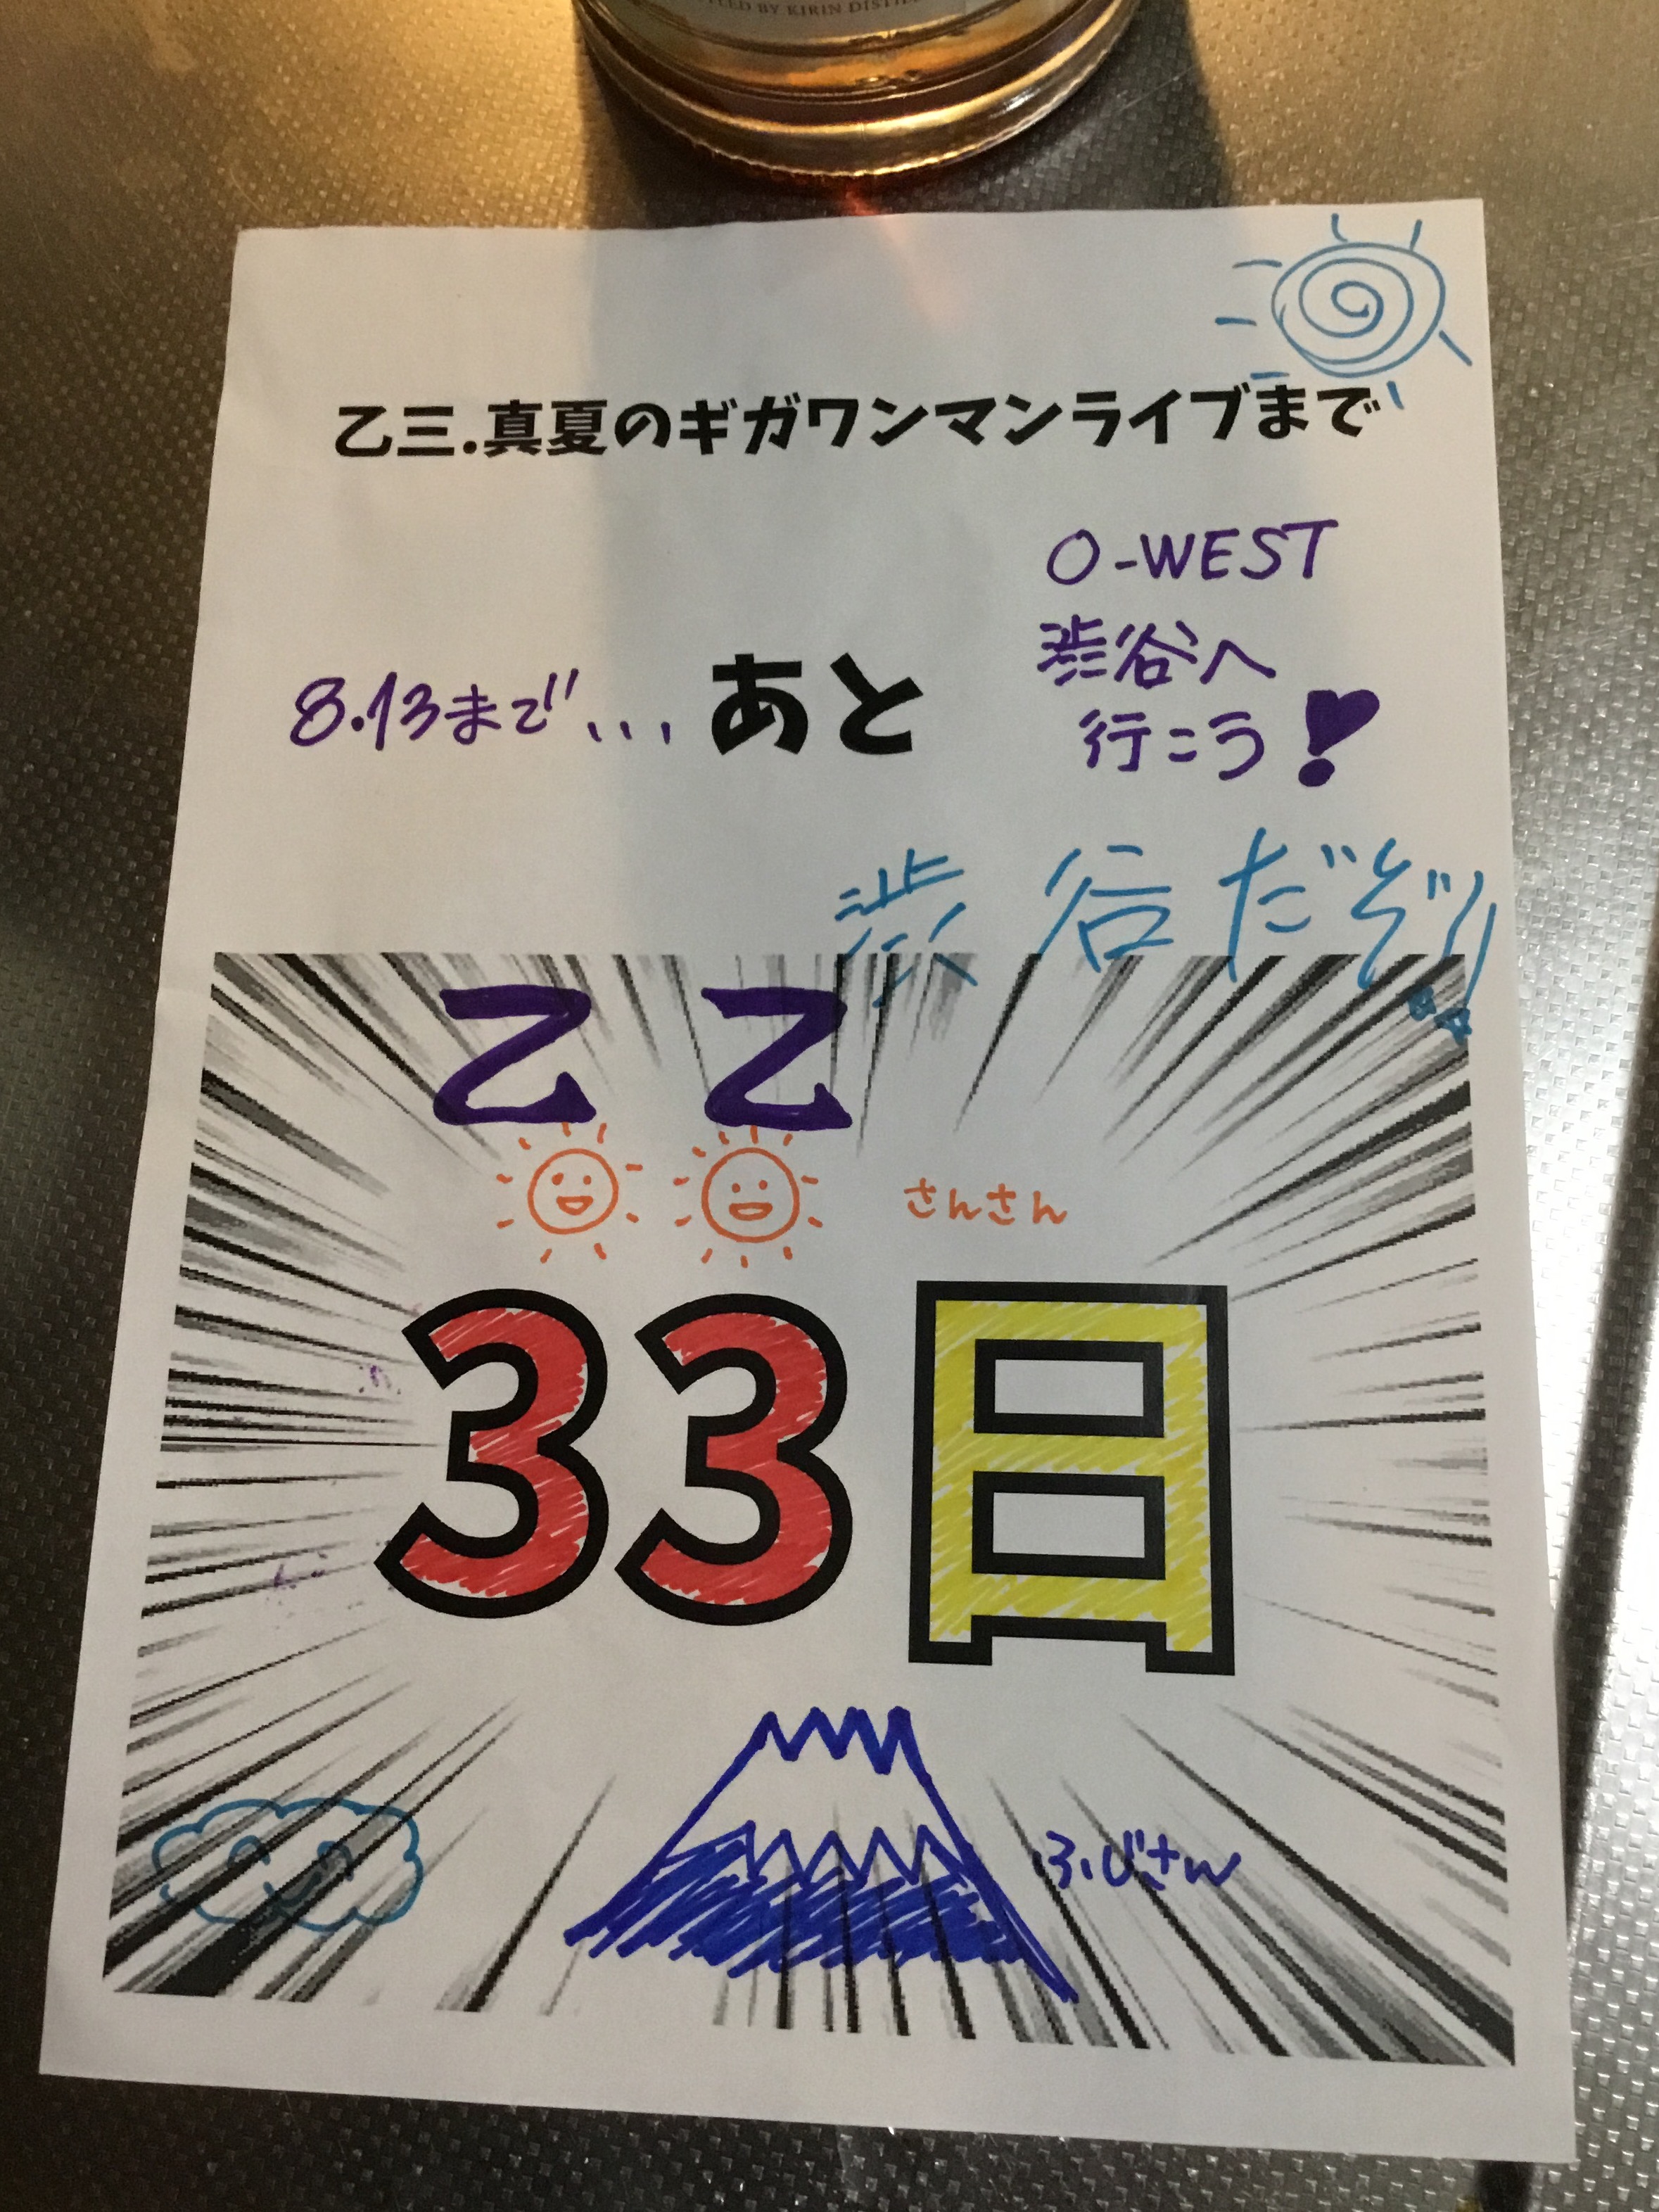 TLED BY KIRIN DISTIL
乙三.真夏のギガワンマンライブまで
O-WEST
渋谷へ
行こう!
8.13まで... あと
渋谷だぞ!!
乙 乙
さんさん
33日
ふじさん